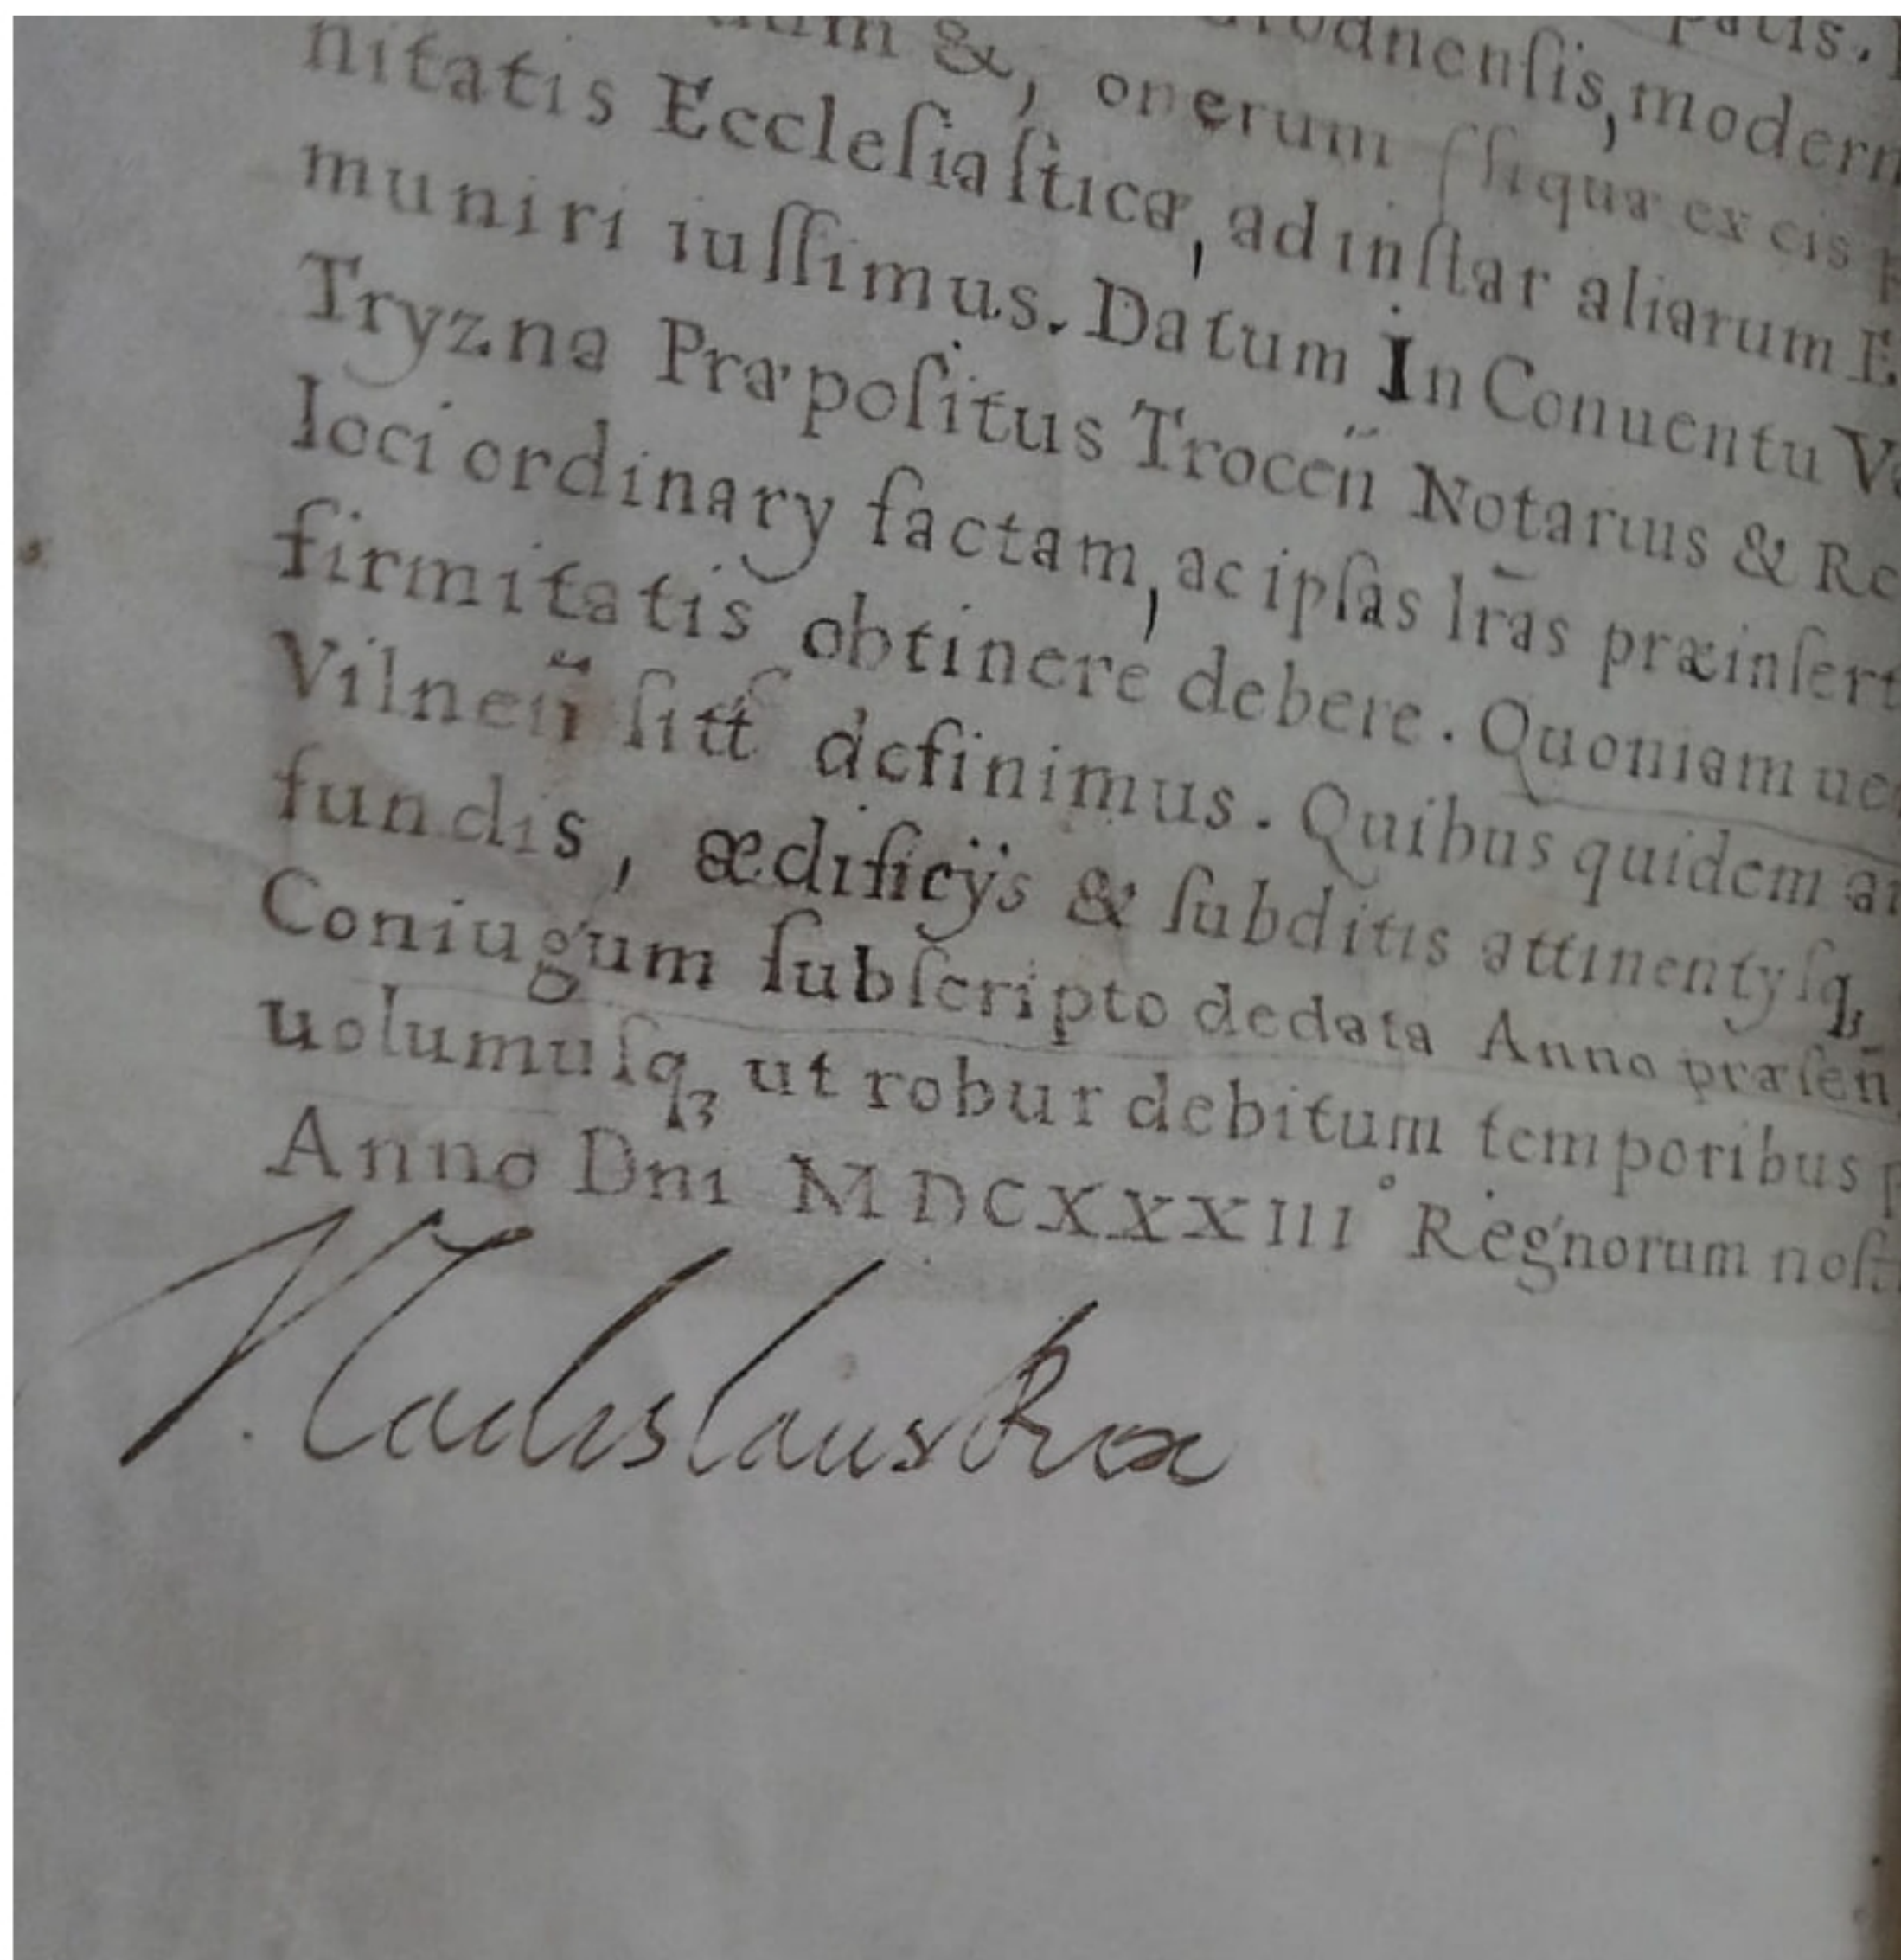 patis.
odnenſis, modern
&, onerum ſſiquæ ex eis
nitatis Eccleſiaſticæ, ad inſtar aliarum E
muniri iuſſimus. Datum In Conuentu V
Tryzna Præpoſitus Trocen̄ Notarius & Re
loci ordinary factam, ac ipſas lr̄as præinſert
firmitatis obtinere debere. Quoniam ue
Vilnen̄ ſitt definimus. Quibus quidem a
fundis, ædificÿs & ſubditis attinentyſq,
Coniugum ſubſcripto dedata Anno præſen̄
uolumuſqꝫ ut robur debitum temporibus p
Anno Dni MDCXXXIII° Regnorum noſt
Vladislaus Rex